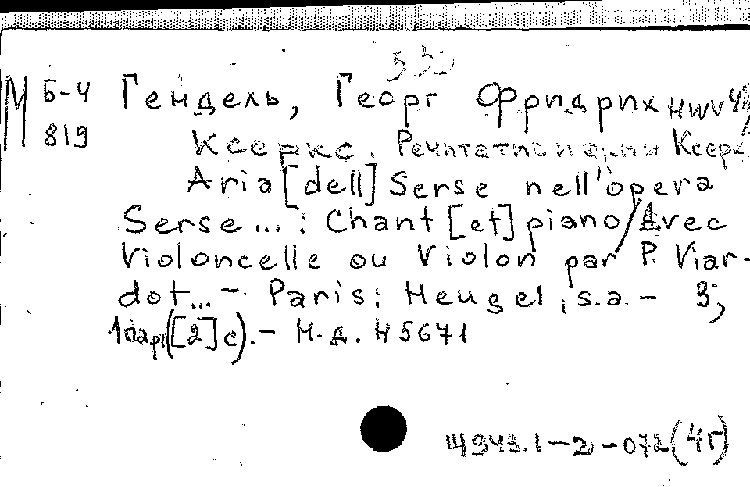 530
М Б-4 Гендель, Георг Фридрих HWV 4
819 Ксеркс. Речитатив и ария Ксерк
Aria [dell] Serse nell'opera
Serse... : Chant [et] piano / Avec
Violoncelle ou Violon par P. Viar-
dot... – Paris: Heugel, s.a. – 3;
1 парт ([2] с). – Н.д. H 5671
Щ943.1-2-072 (4Г)